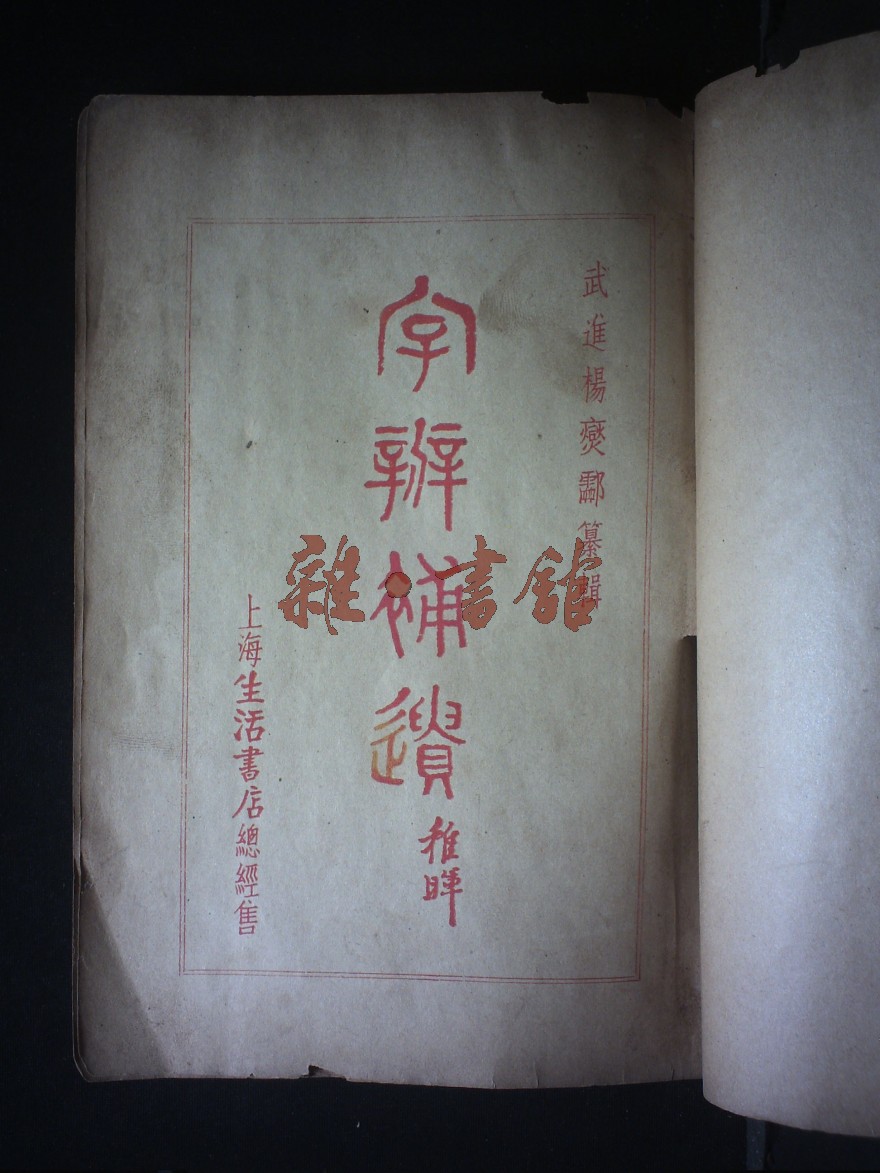 武進楊燮酃纂輯
字辨補遺
稚暉
上海生活書店總經售
雜·書館